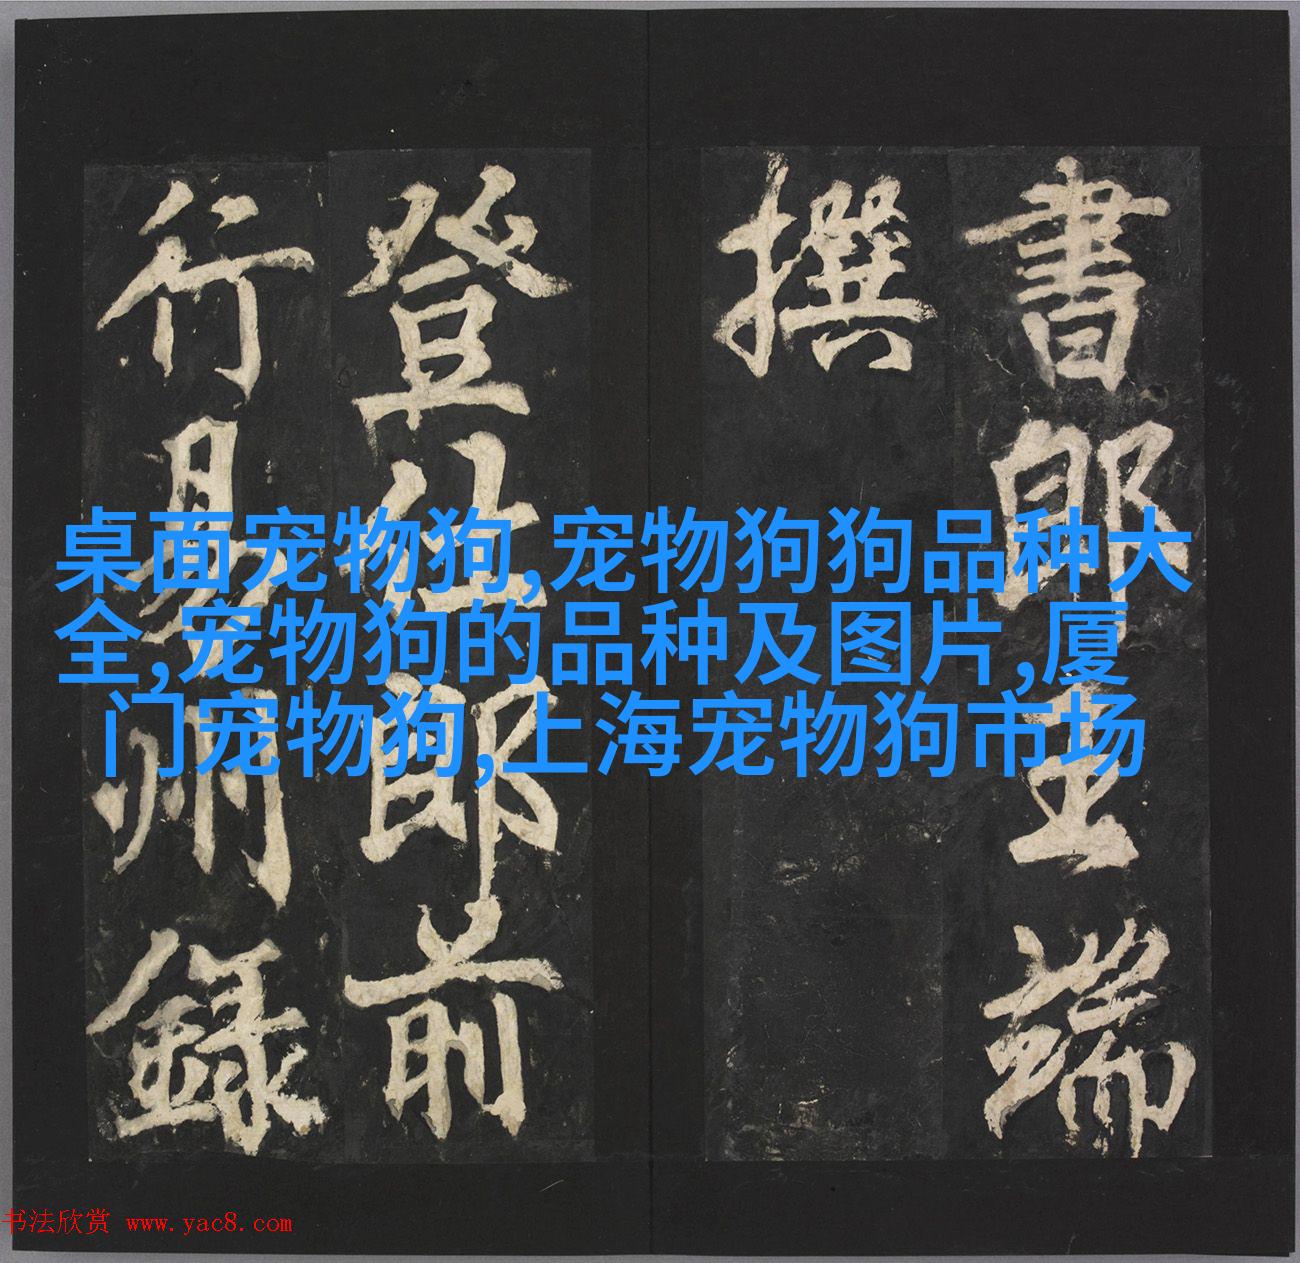 書郎王端
撰
登仕郎前
行易州録
桌面宠物狗,宠物狗狗品种大
全,宠物狗的品种及图片,厦
门宠物狗,上海宠物狗市场
书法欣赏 www.yac8.com